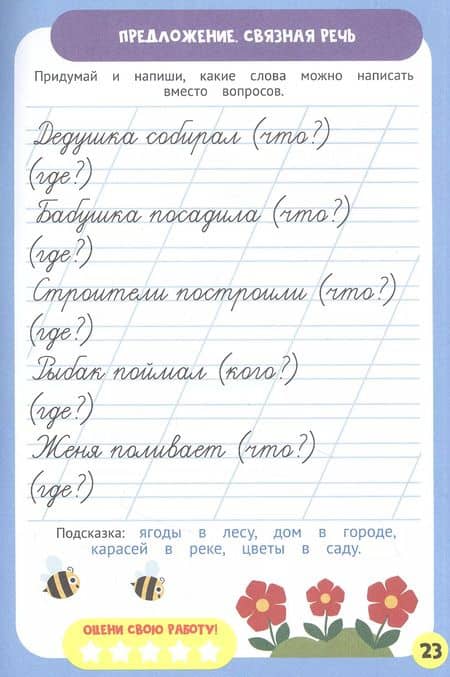 ПРЕДЛОЖЕНИЕ. СВЯЗНАЯ РЕЧЬ
Придумай и напиши, какие слова можно написать
вместо вопросов.
Дедушка собирал (что?)
(где?)
Бабушка посадила (что?)
(где?)
Строители построили (что?)
(где?)
Рыбак поймал (кого?)
(где?)
Женя поливает (что?)
(где?)
Подсказка: ягоды в лесу, дом в городе,
карасей в реке, цветы в саду.
ОЦЕНИ СВОЮ РАБОТУ!
23